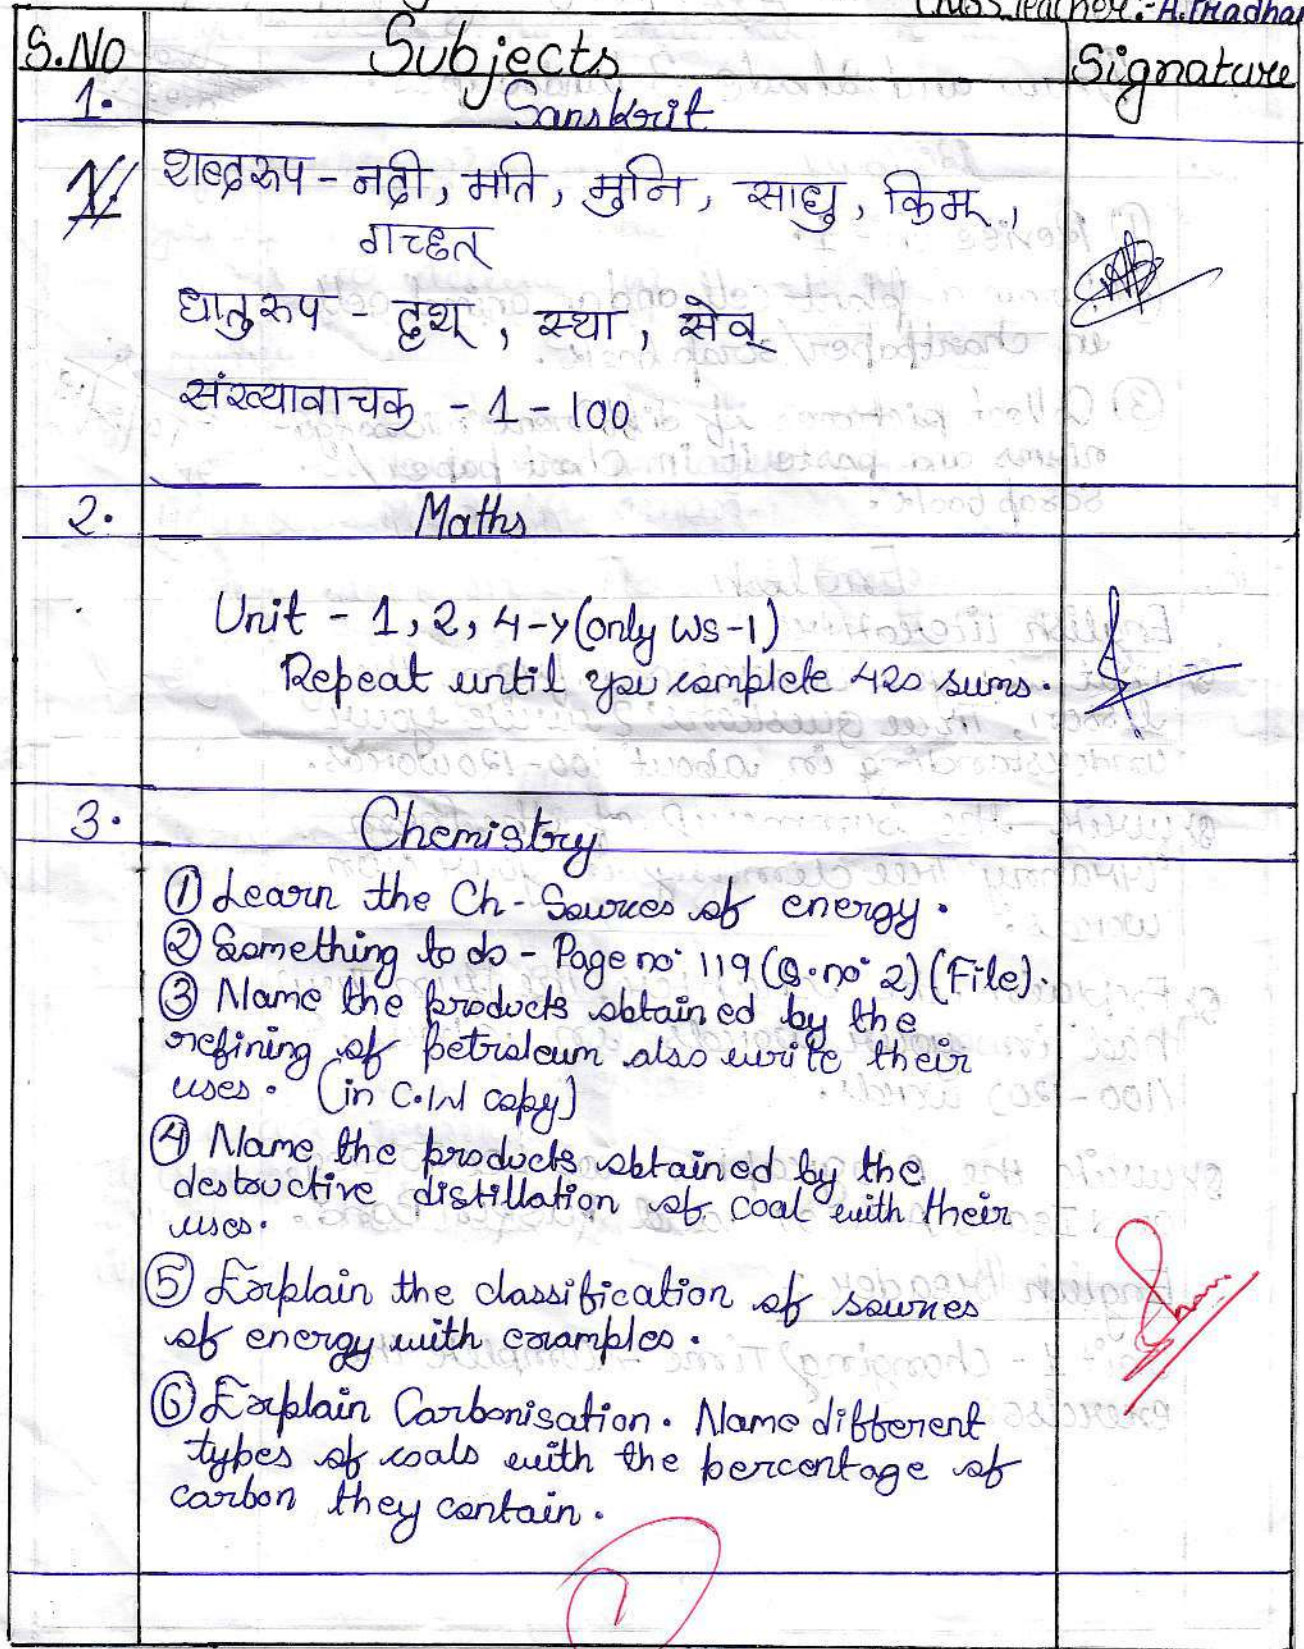 Class Teacher:- A. Pradhan
S.No Subjects Signature
1. Sanskrit
शब्दरूप - नदी, मति, मुनि, साधु, किम्,
गच्छत्
धातुरूप - दृश्, स्था, सेव्
संख्यावाचक - 1 - 100
2. Maths
Unit - 1, 2, 4-> (only WS-1)
Repeat until you complete 420 sums.
3. Chemistry
① Learn the Ch - Sources of energy.
② Something to do - Page no. 119 (Q. no. 2) (File).
③ Name the products obtained by the
refining of petroleum also write their
uses. (in C.W copy)
④ Name the products obtained by the
destructive distillation of coal with their
uses.
⑤ Explain the classification of sources
of energy with examples.
⑥ Explain Carbonisation. Name different
types of coals with the percentage of
carbon they contain.